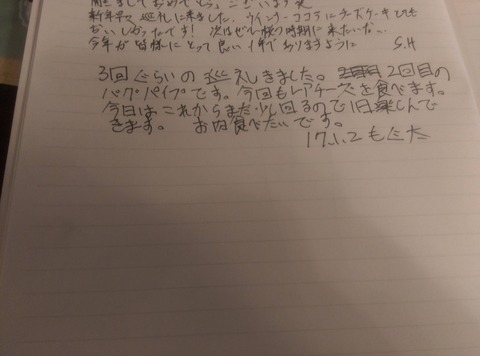 明けましておめでとうございます
新年早々巡礼に来ました。ウインナーココアにチーズケーキとても
おいしかったです! 次はぜひ桜の時期に来たいな。
今年が皆様にとって良い1年でありますように S.H
3回ぐらいの巡礼きました。2回目の
バグパイプです。今回もレアチーズを食べます。
今日はこれからまだ少し回るので1日楽しんで
きます。 お肉食べたいです。
17.1.2